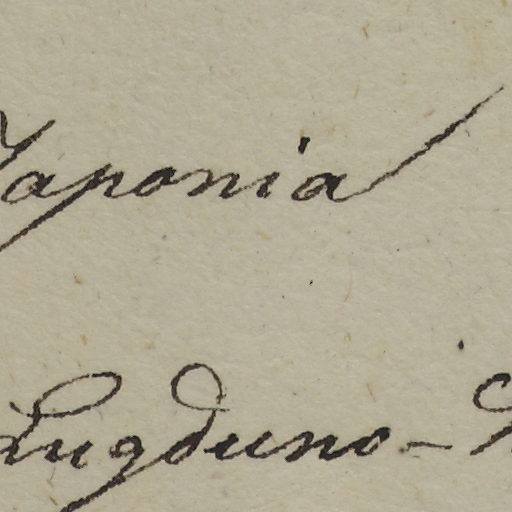 Japonia
Lugduno-